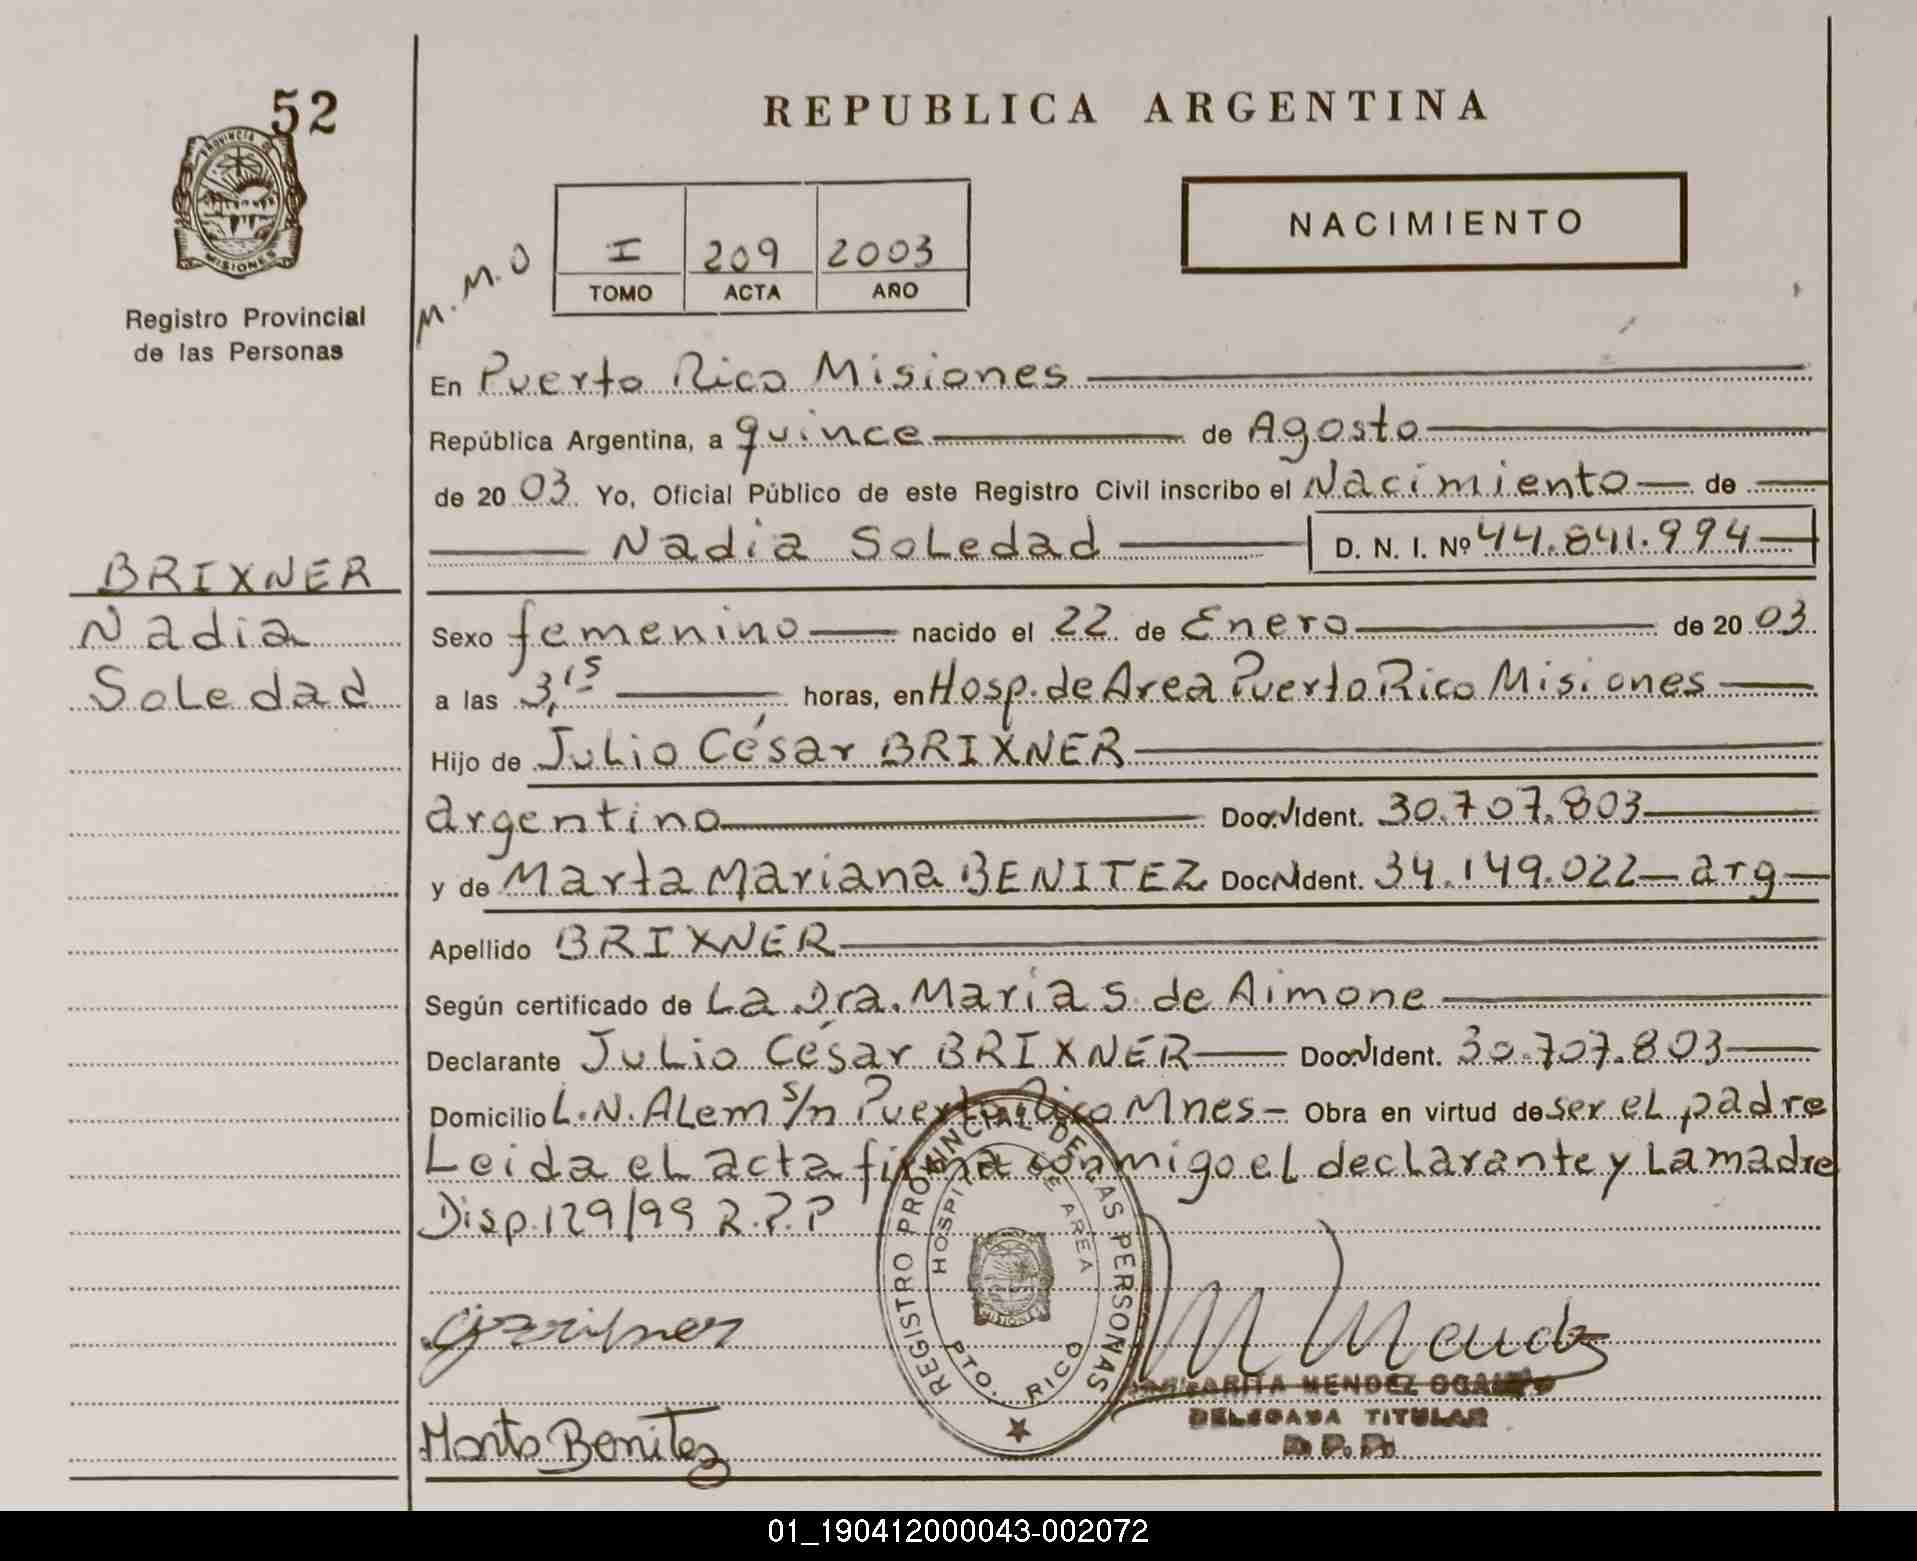 52
PROVINCIA DE
MISIONES
Registro Provincial
de las Personas
BRIXNER
Nadia
Soledad
REPUBLICA ARGENTINA
NACIMIENTO
M.M.O
I 209 2003
TOMO ACTA AÑO
En Puerto Rico Misiones
República Argentina, a quince de Agosto
de 20 03 Yo, Oficial Público de este Registro Civil inscribo el Nacimiento de
Nadia Soledad D. N. I. Nº 44.841.994
Sexo femenino nacido el 22 de Enero de 20 03
a las 3,15 horas, en Hosp. de Area Puerto Rico Misiones
Hijo de Julio César BRIXNER
argentino Doc. Ident. 30.707.803
y de Marta Mariana BENITEZ Doc. Ident. 34.149.022 arg
Apellido BRIXNER
Según certificado de La Dra. María S. de Aimone
Declarante Julio César BRIXNER Doc. Ident. 30.707.803
Domicilio L.N. ALem s/n Puerto Rico Mnes - Obra en virtud de ser el padre
Leida el acta firma conmigo el declarante y La madre
Disp. 129/99 R.P.P
REGISTRO PROVINCIAL DE LAS PERSONAS
HOSPITAL DE AREA
MISIONES
PTO. RICO
M Mendez
MARGARITA MENDEZ
DELEGADA TITULAR
Marta Benitez
01_190412000043-002072